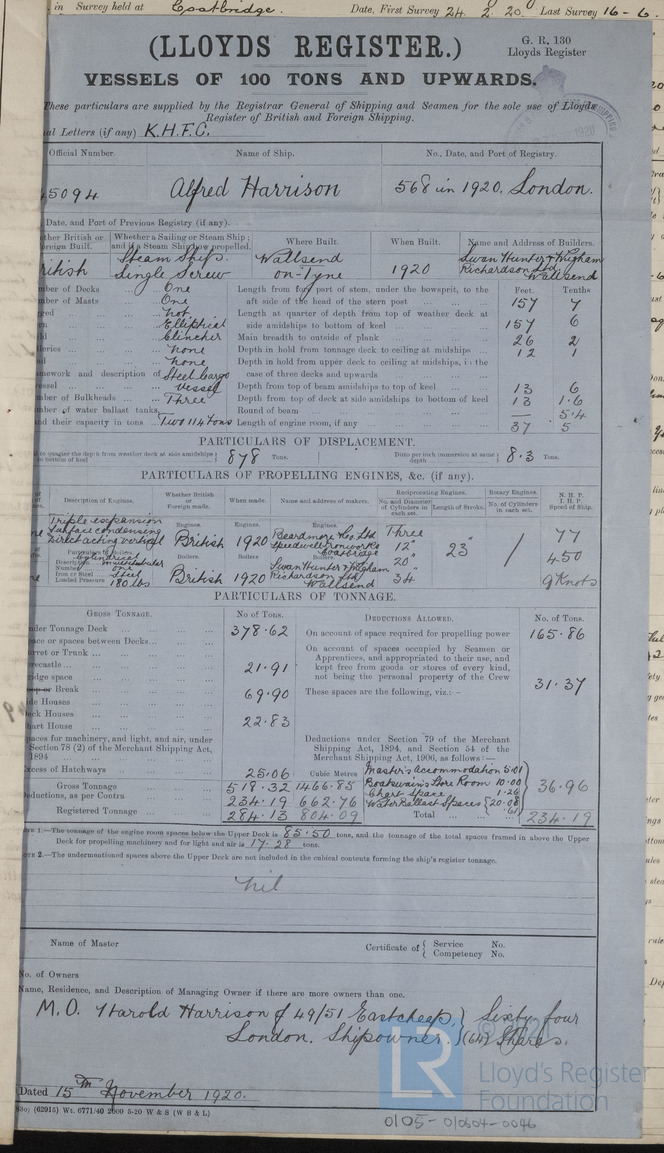 in Survey held at Coatbridge. Date, First Survey 24. 2. 20. Last Survey 16-6.
(LLOYDS REGISTER.)
G. R. 130
Lloyds Register
VESSELS OF 100 TONS AND UPWARDS.
These particulars are supplied by the Registrar General of Shipping and Seamen for the sole use of Lloyds
Register of British and Foreign Shipping.
al Letters (if any) K.H.F.C.
Official Number. Name of Ship. No., Date, and Port of Registry.
45094 Alfred Harrison 568 in 1920. London.
Date, and Port of Previous Registry (if any).
ther British or Foreign Built. Whether a Sailing or Steam Ship; and if a Steam Ship how propelled. Where Built. When Built. Name and Address of Builders.
ritish Steam Ship. Single Screw Wallsend on-Tyne 1920 Swan Hunter & Wigham Richardson Ltd Wallsend
Feet. Tenths
mber of Decks One Length from fore part of stem, under the bowsprit, to the
mber of Masts One aft side of the head of the stern post 157 7
ged not Length at quarter of depth from top of weather deck at
n Elliptical side amidships to bottom of keel 157 6
Clencher Main breadth to outside of plank 26 2
lleries none Depth in hold from tonnage deck to ceiling at midships 12 1
none Depth in hold from upper deck to ceiling at midships, in the
mework and description of Steel Cargo case of three decks and upwards
essel Vessel Depth from top of beam amidships to top of keel 13 6
mber of Bulkheads Three Depth from top of deck at side amidships to bottom of keel 13 1.6
mber of water ballast tanks, Round of beam — 5.4
nd their capacity in tons Two 114 tons Length of engine room, if any 37 5
PARTICULARS OF DISPLACEMENT.
to quarter the depth from weather deck at side amidships to bottom of keel 878 Tons. Ditto per inch immersion at same depth 8.3 Tons.
PARTICULARS OF PROPELLING ENGINES, &c. (if any).
Description of Engines. Whether British or Foreign made. When made. Name and address of makers. Reciprocating Engines. Rotary Engines. N.H.P. I.H.P. Speed of Ship.
No. and Diameter of Cylinders in each set. Length of Stroke. No. of Cylinders in each set.
Triple expansion Surface condensing Direct acting vertical
Engines. British Engines. 1920 Engines. Beardmore & Co. Ltd Speedwell Ironworks Coatbridge Three 12" 20" 34 23" 77 450 9 Knots
Particulars of Boilers. Description Cylindrical multitubular
Number one
Iron or Steel Steel
Loaded Pressure 180 lbs
Boilers. British Boilers 1920 Boilers. Swan Hunter & Wigham Richardson Ltd Wallsend
PARTICULARS OF TONNAGE.
GROSS TONNAGE. No of Tons. DEDUCTIONS ALLOWED. No. of Tons.
nder Tonnage Deck 378.62 On account of space required for propelling power 165.86
pace or spaces between Decks
urret or Trunk On account of spaces occupied by Seamen or
recastle 21.91 Apprentices, and appropriated to their use, and
ridge space kept free from goods or stores of every kind,
not being the personal property of the Crew 31.37
Break 69.90 These spaces are the following, viz.:—
de Houses
eck Houses 22.83
hart House
paces for machinery, and light, and air, under Section 78 (2) of the Merchant Shipping Act, 1894
Deductions under Section 79 of the Merchant Shipping Act, 1894, and Section 54 of the Merchant Shipping Act, 1906, as follows:—
xcess of Hatchways 25.06 Cubic Metres Master's accommodation 5.01
Gross Tonnage 518.32 1466.85 Boatswain's Store Room 10.00 36.96
Chart Space 1.26
eductions, as per Contra 234.19 662.76 Water Ballast Spaces 20.08 .61
Registered Tonnage 284.13 804.09 Total 234.19
OTE 1.—The tonnage of the engine room spaces below the Upper Deck is 85.50 tons, and the tonnage of the total spaces framed in above the Upper
Deck for propelling machinery and for light and air is 17.28 tons.
OTE 2.—The undermentioned spaces above the Upper Deck are not included in the cubical contents forming the ship's register tonnage.
nil
Name of Master Certificate of { Service No. Competency No.
No. of Owners
Name, Residence, and Description of Managing Owner if there are more owners than one.
M.O. Harold Harrison of 49/51 Eastcheap, } Sixty four
London. Shipowner. } (64) Shares.
Dated 15th November 1920.
(62915) Wt. 6771/40 2000 5-20 W & S (W B & L)
LR
Lloyd's Register
Foundation
0105-010504-0096